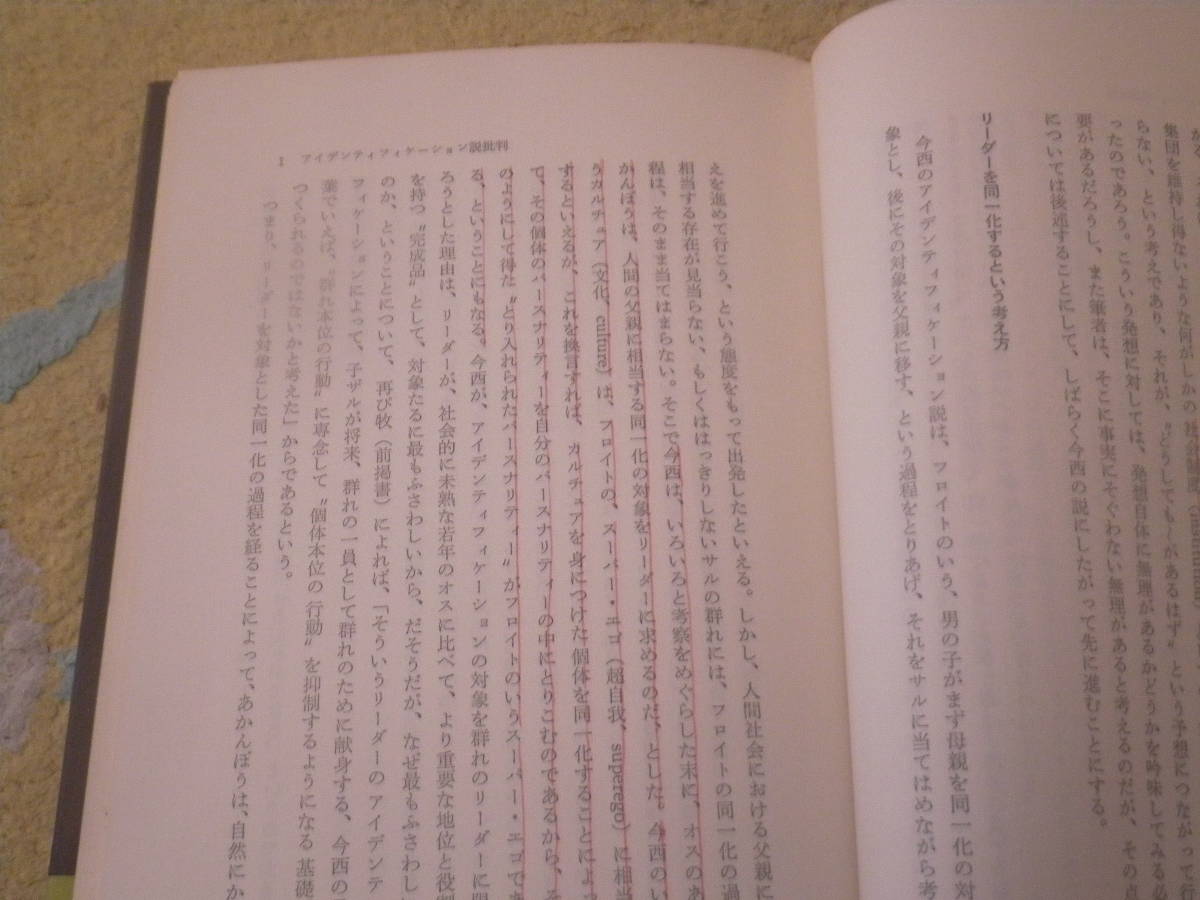 集団を維持し得ないような何がしかの社
らない、という考えであり、それが、〝どうしても〜があるはず〟という予想につながって行
ったのであろう。こういう発想に対しては、発想自体に無理があるかどうかを吟味してみる必
要があるだろうし、また筆者は、そこに事実にそぐわない無理があると考えるのだが、その点
については後述することにして、しばらく今西の説にしたがって先に進むことにする。
リーダーを同一化するという考え方
今西のアイデンティフィケーション説は、フロイトのいう、男の子がまず母親を同一化の対
象とし、後にその対象を父親に移す、という過程をとりあげ、それをサルに当てはめながら考
えを進めて行こう、という態度をもって出発したといえる。しかし、人間社会における父親に
相当する存在が見当らない、もしくははっきりしないサルの群れには、フロイトの同一化の過
程は、そのまま当てはまらない。そこで今西は、いろいろと考察をめぐらした末に、オスのあ
かんぼうは、人間の父親に相当する同一化の対象をリーダーに求めるのだ、とした。今西のい
うカルチュア（文化、culture）は、フロイトの、スーパー・エゴ（超自我、superego）に相当
するといえるが、これを換言すれば、カルチュアを身につけた個体を同一化することによっ
て、その個体のパースナリティーを自分のパースナリティーの中にとりこむのであるから、そ
のようにして得た〝とり入れられたパースナリティー〟がフロイトのいうスーパー・エゴであ
る、ということにもなる。今西が、アイデンティフィケーションの対象を群れのリーダーに限
ろうとした理由は、リーダーが、社会的に未熟な若年のオスに比べて、より重要な地位と役割
を持つ〝完成品〟として、対象たるに最もふさわしいから、だそうだが、なぜ最もふさわし
のか、ということについて、再び牧（前掲書）によれば、「そういうリーダーのアイデンテ
フィケーションによって、子ザルが将来、群れの一員として群れのために献身する、今西の
葉でいえば、〝群れ本位の行動〟に専念して〝個体本位の行動〟を抑制するようになる基礎
つくられるのではないかと考えた」からであるという。
つまり、リーダーを対象とした同一化の過程を経ることによって、あかんぼうは、自然にか
I アイデンティフィケーション説批判